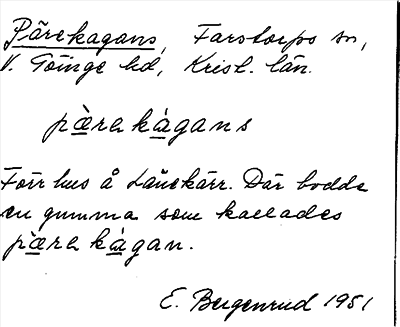 Pärekagans, Farstorps sn,
V. Göinge hd, Krist. län.
pæ̀ra kàgans
Förr hus å Lönekärr. Där bodde
en gumma som kallades
pæ̀ra kàgan.
E. Bergenrud 1951